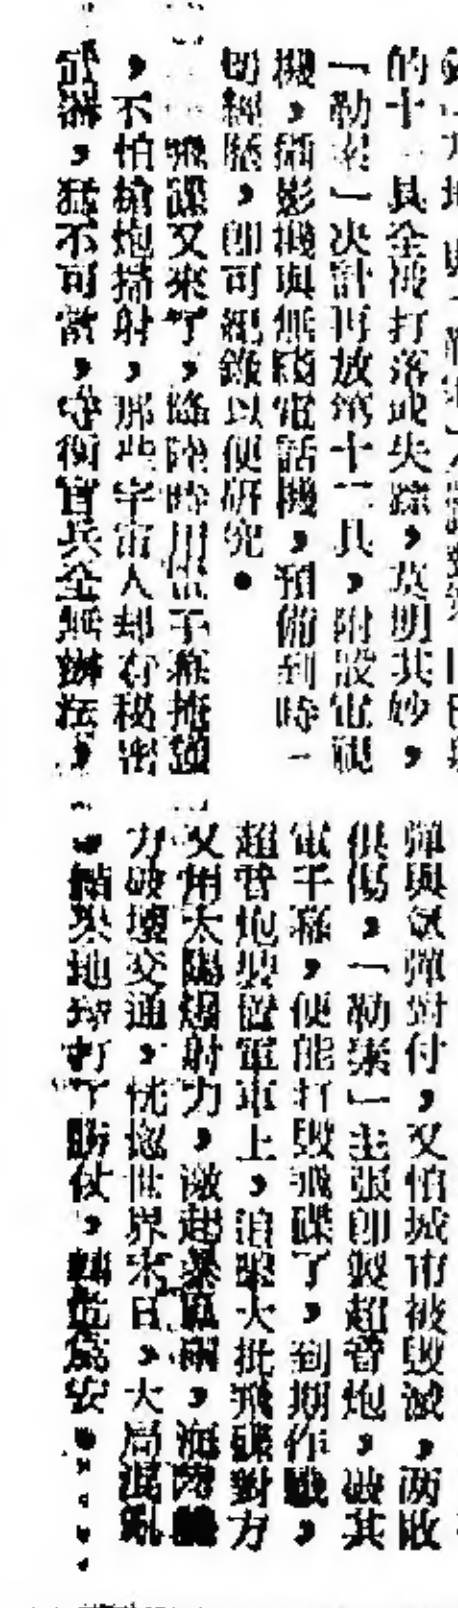 的十一具全被打落或失踪，莫明其妙，
「勒素」決計再放第十二具，附設電視
機，攝影機與無綫電話機，預備到時一
切經歷，即可紀錄以便研究。
飛碟又來了，降陸時用電子幕掩護
，不怕槍炮掃射，那些宇宙人却有秘密
武器，猛不可當，守衛官兵全無辦法，
彈與氫彈對付，又怕城市被毀滅，兩敗
俱傷，「勒素」主張即製超音炮，破其
電子幕，便能打毀飛碟了，到期作戰，
超音炮裝置軍車上，消滅大批飛碟對方
又用太陽輻射力，激起暴風雨，海嘯
力破壞交通，恍惚世界末日，大局混亂
，結果地球打了勝仗，轉危為安